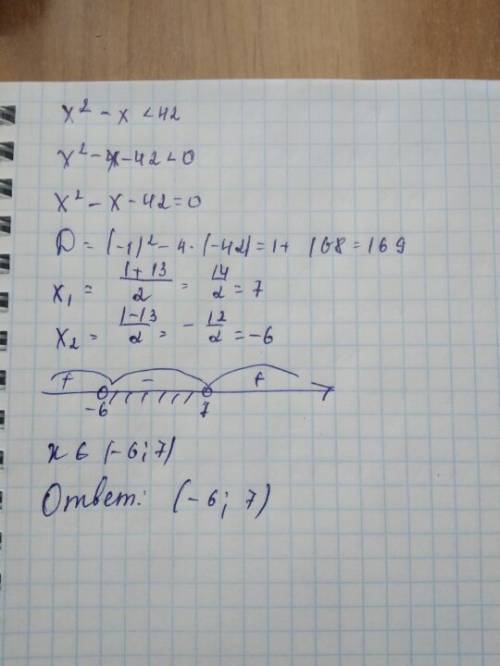 x² - x < 42
x² - x - 42 < 0
x² - x - 42 = 0
D = (-1)² - 4 · (-42) = 1 + 168 = 169
x₁ = (1+13)/2 = 14/2 = 7
x₂ = (1-13)/2 = -12/2 = -6
+ - +
-6 7
x ∈ (-6; 7)
Ответ: (-6; 7)